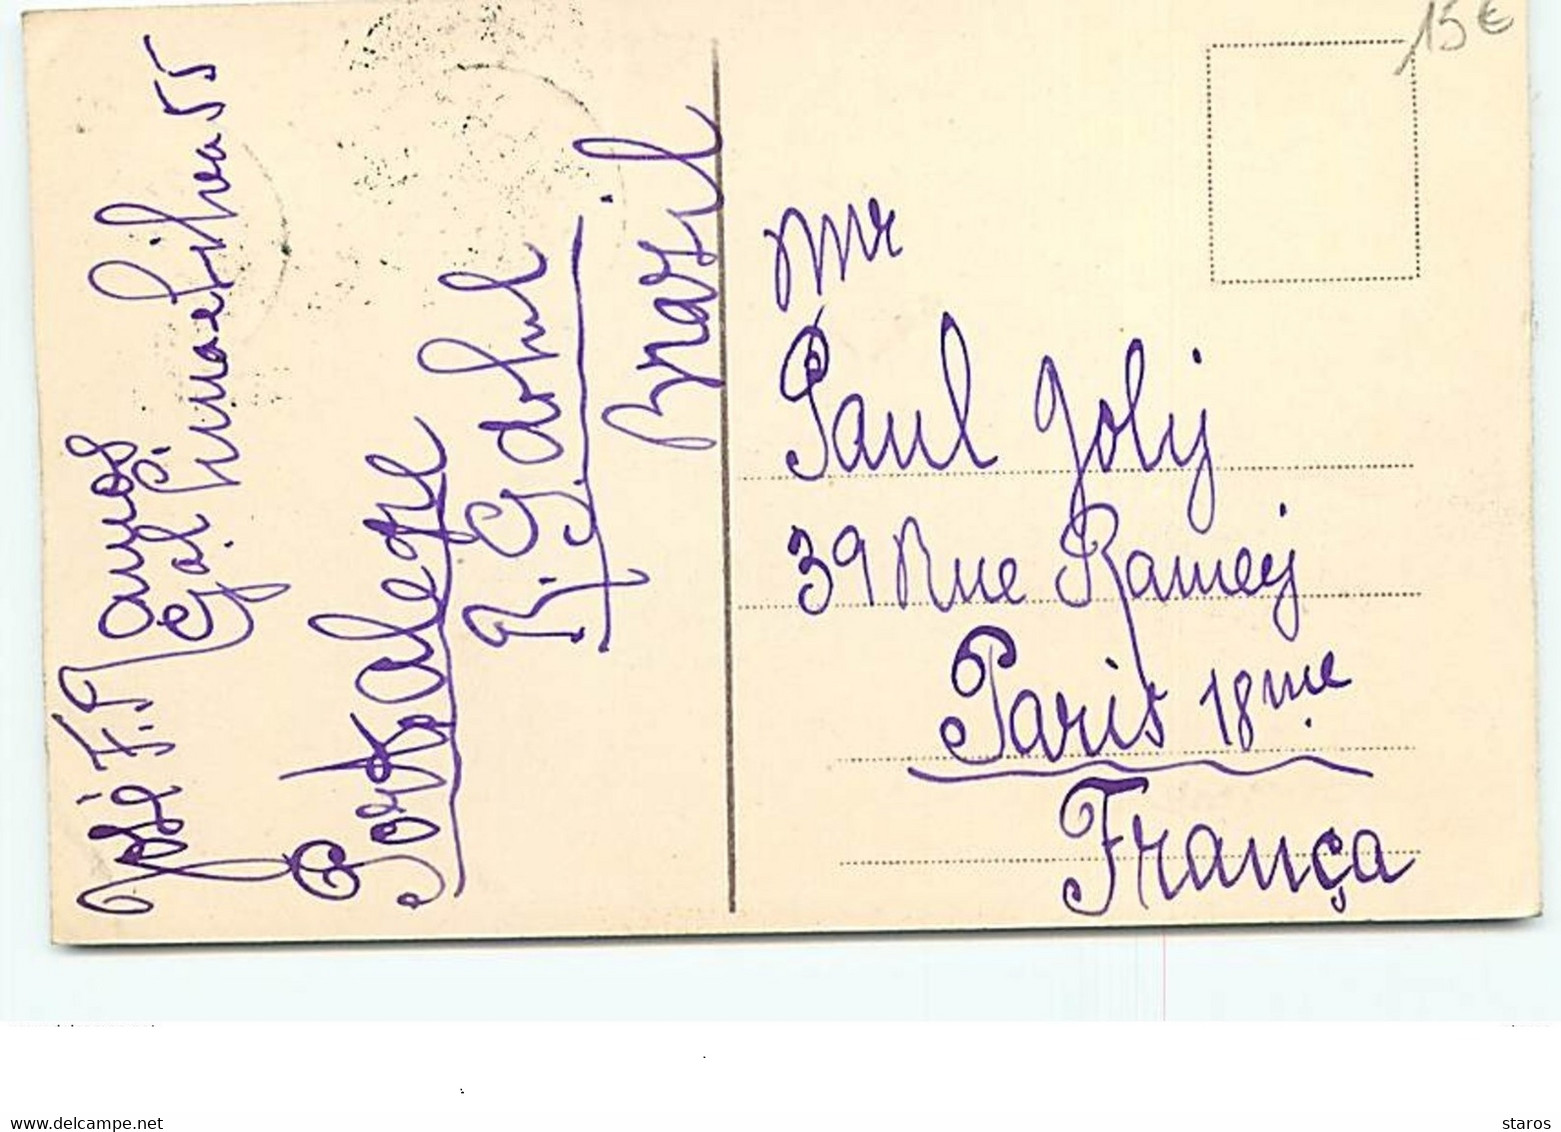 José F. Ramos
Gal. Lima e Silva 55
Porto Alegre
R. G. do Sul
Brasil
15€
Mr
Paul Joly
39 Rue Ramey
Paris 18me
França
www.delcampe.net
staros